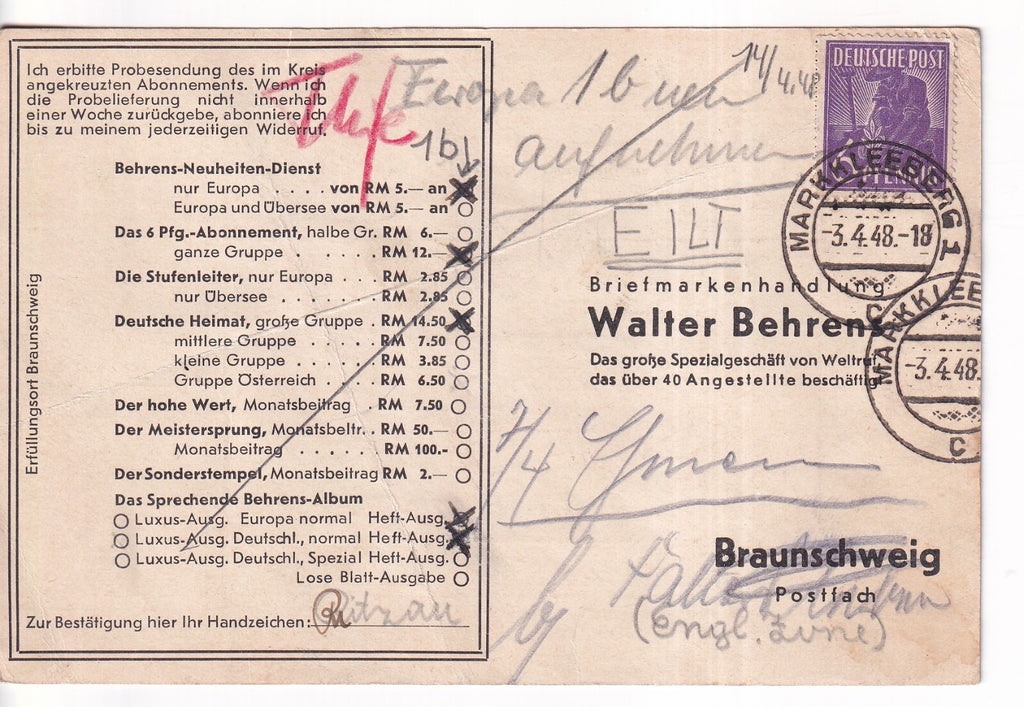 Ich erbitte Probesendung des im Kreis
angekreuzten Abonnements. Wenn ich
die Probelieferung nicht innerhalb
einer Woche zurückgebe, abonniere ich
bis zu meinem jederzeitigen Widerruf.
1b
Behrens-Neuheiten-Dienst
nur Europa . . . . von RM 5.— an
Europa und Übersee von RM 5.— an
Das 6 Pfg.-Abonnement, halbe Gr. RM 6.—
ganze Gruppe . . . . . . RM 12.—
Die Stufenleiter, nur Europa . . RM 2.85
nur Übersee . . . . . . . RM 2.85
Deutsche Heimat, große Gruppe . RM 14.50
mittlere Gruppe . . . . RM 7.50
kleine Gruppe . . . . . RM 3.85
Gruppe Österreich . . . . RM 6.50
Der hohe Wert, Monatsbeitrag . RM 7.50
Der Meistersprung, Monatsbeitr. . RM 50.—
Monatsbeitrag . . . . . RM 100.-
Der Sonderstempel, Monatsbeitrag RM 2.—
Das Sprechende Behrens-Album
Luxus-Ausg. Europa normal Heft-Ausg.
Luxus-Ausg. Deutschl., normal Heft-Ausg.
Luxus-Ausg. Deutschl., Spezial Heft-Ausg.
Lose Blatt-Ausgabe
Zur Bestätigung hier Ihr Handzeichen: Ritzau
Erfüllungsort Braunschweig
Europa 1b neu
aufnehmen
14/4.48
EILT
DEUTSCHE POST
MARKKLEEBERG 1
-3.4.48.-18
C
MARKKLEE
-3.4.48.
C
Briefmarkenhandlung
Walter Behrens
Das große Spezialgeschäft von Weltruf,
das über 40 Angestellte beschäftigt
7/4
Braunschweig
Postfach
(engl. Zone)